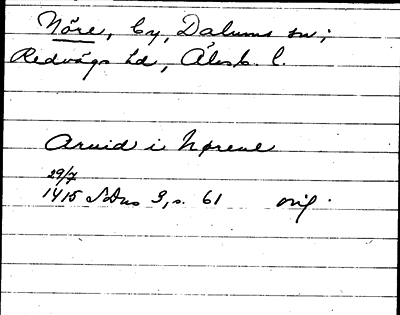 Nöre, by, Dalums sn;
Redvägs hd, Älvsb. l.
Arvid i Nørene
29/7
1415 SDns 3, s. 61 orig.